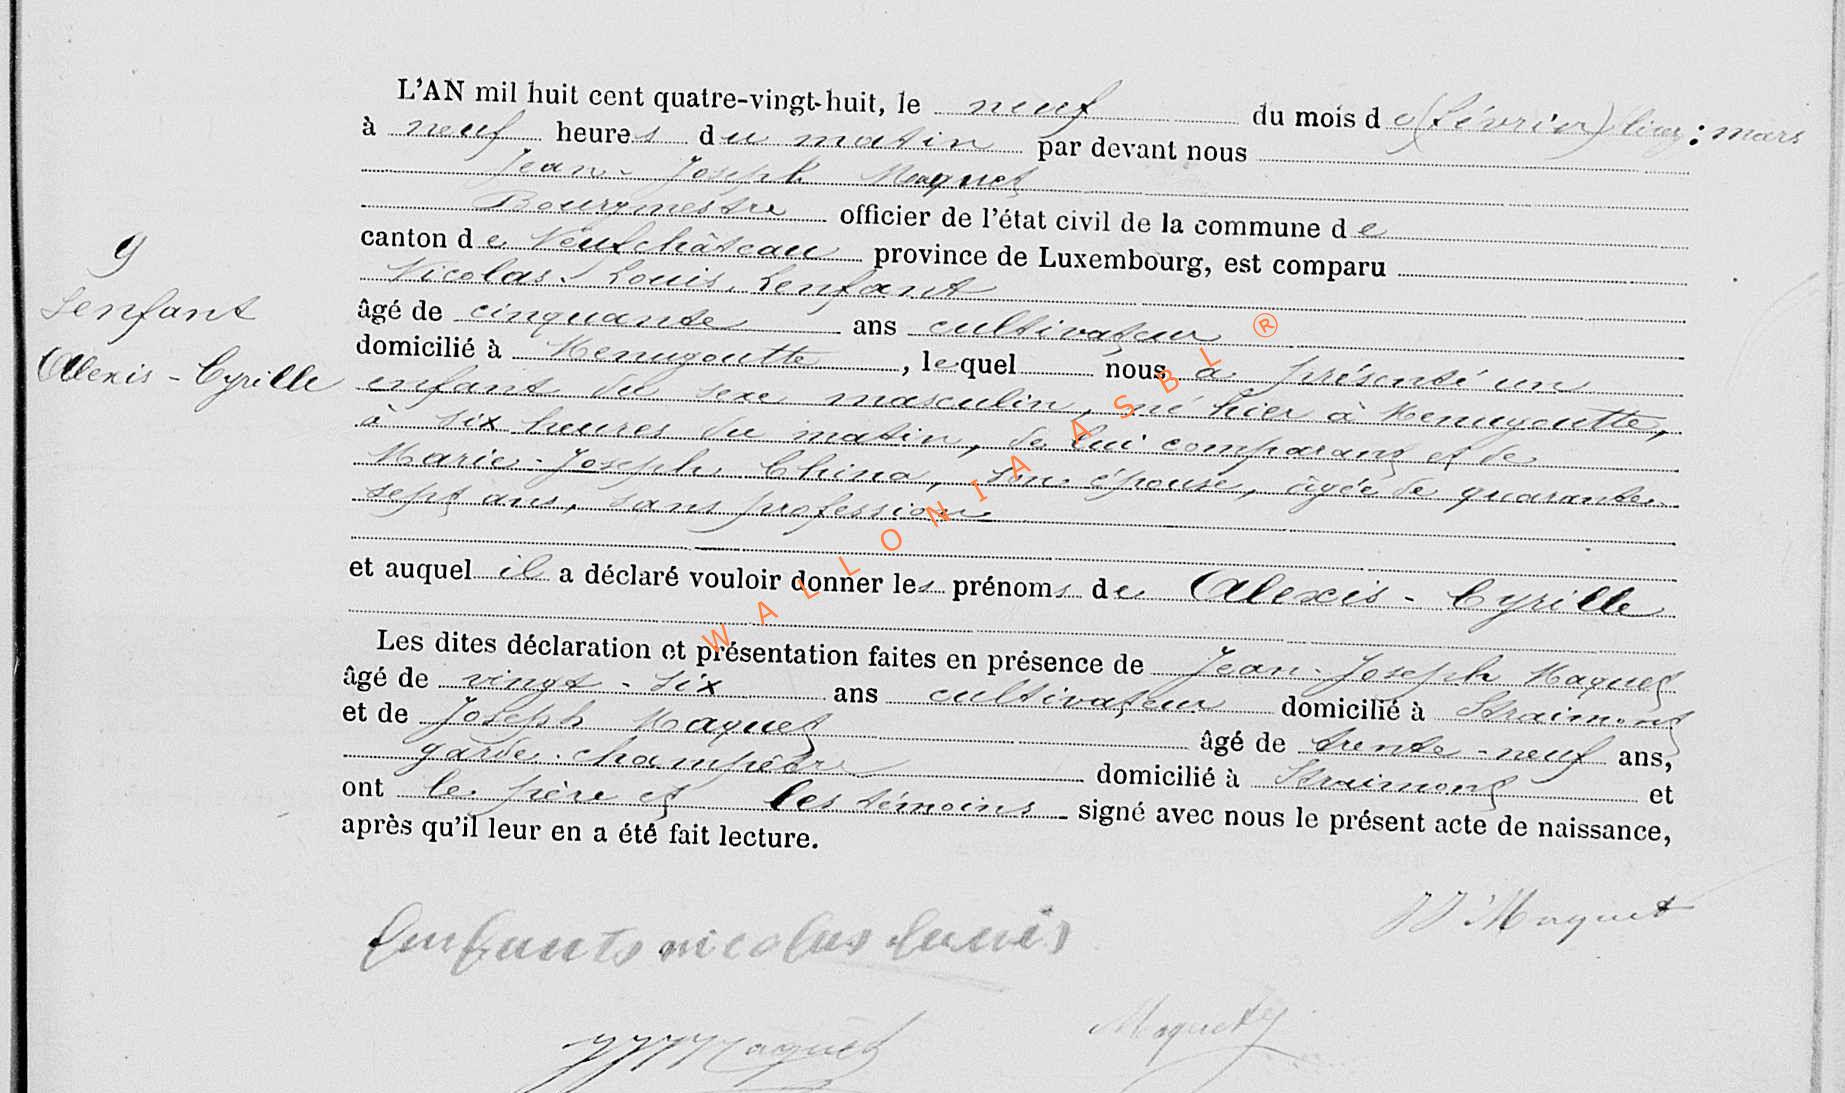 L'AN mil huit cent quatre-vingt-huit, le neuf du mois de (février) lisez : mars
à neuf heures du matin par devant nous
Jean-Joseph Maquet
Bourgmestre officier de l'état civil de la commune de
canton de Neufchâteau province de Luxembourg, est comparu
Nicolas-Louis Lenfant
âgé de cinquante ans cultivateur
domicilié à Menugoutte, lequel nous a présenté un
enfant du sexe masculin, né hier à Menugoutte,
à six heures du matin, de lui comparant et de
Marie-Joseph China, son épouse, âgée de quarante
sept ans, sans profession
et auquel il a déclaré vouloir donner les prénoms de Alexis-Cyrille
Les dites déclaration et présentation faites en présence de Jean-Joseph Maquet
âgé de vingt-six ans cultivateur domicilié à Straimont
et de Joseph Maquet âgé de trente-neuf ans,
garde-champêtre domicilié à Straimont et
ont le père et les témoins signé avec nous le présent acte de naissance,
après qu'il leur en a été fait lecture.
9
Lenfant
Alexis-Cyrille
WALLONIA ASBL ®
JJ Maquet
Lenfants nicolas louis
JJ Maquet
Maquet J